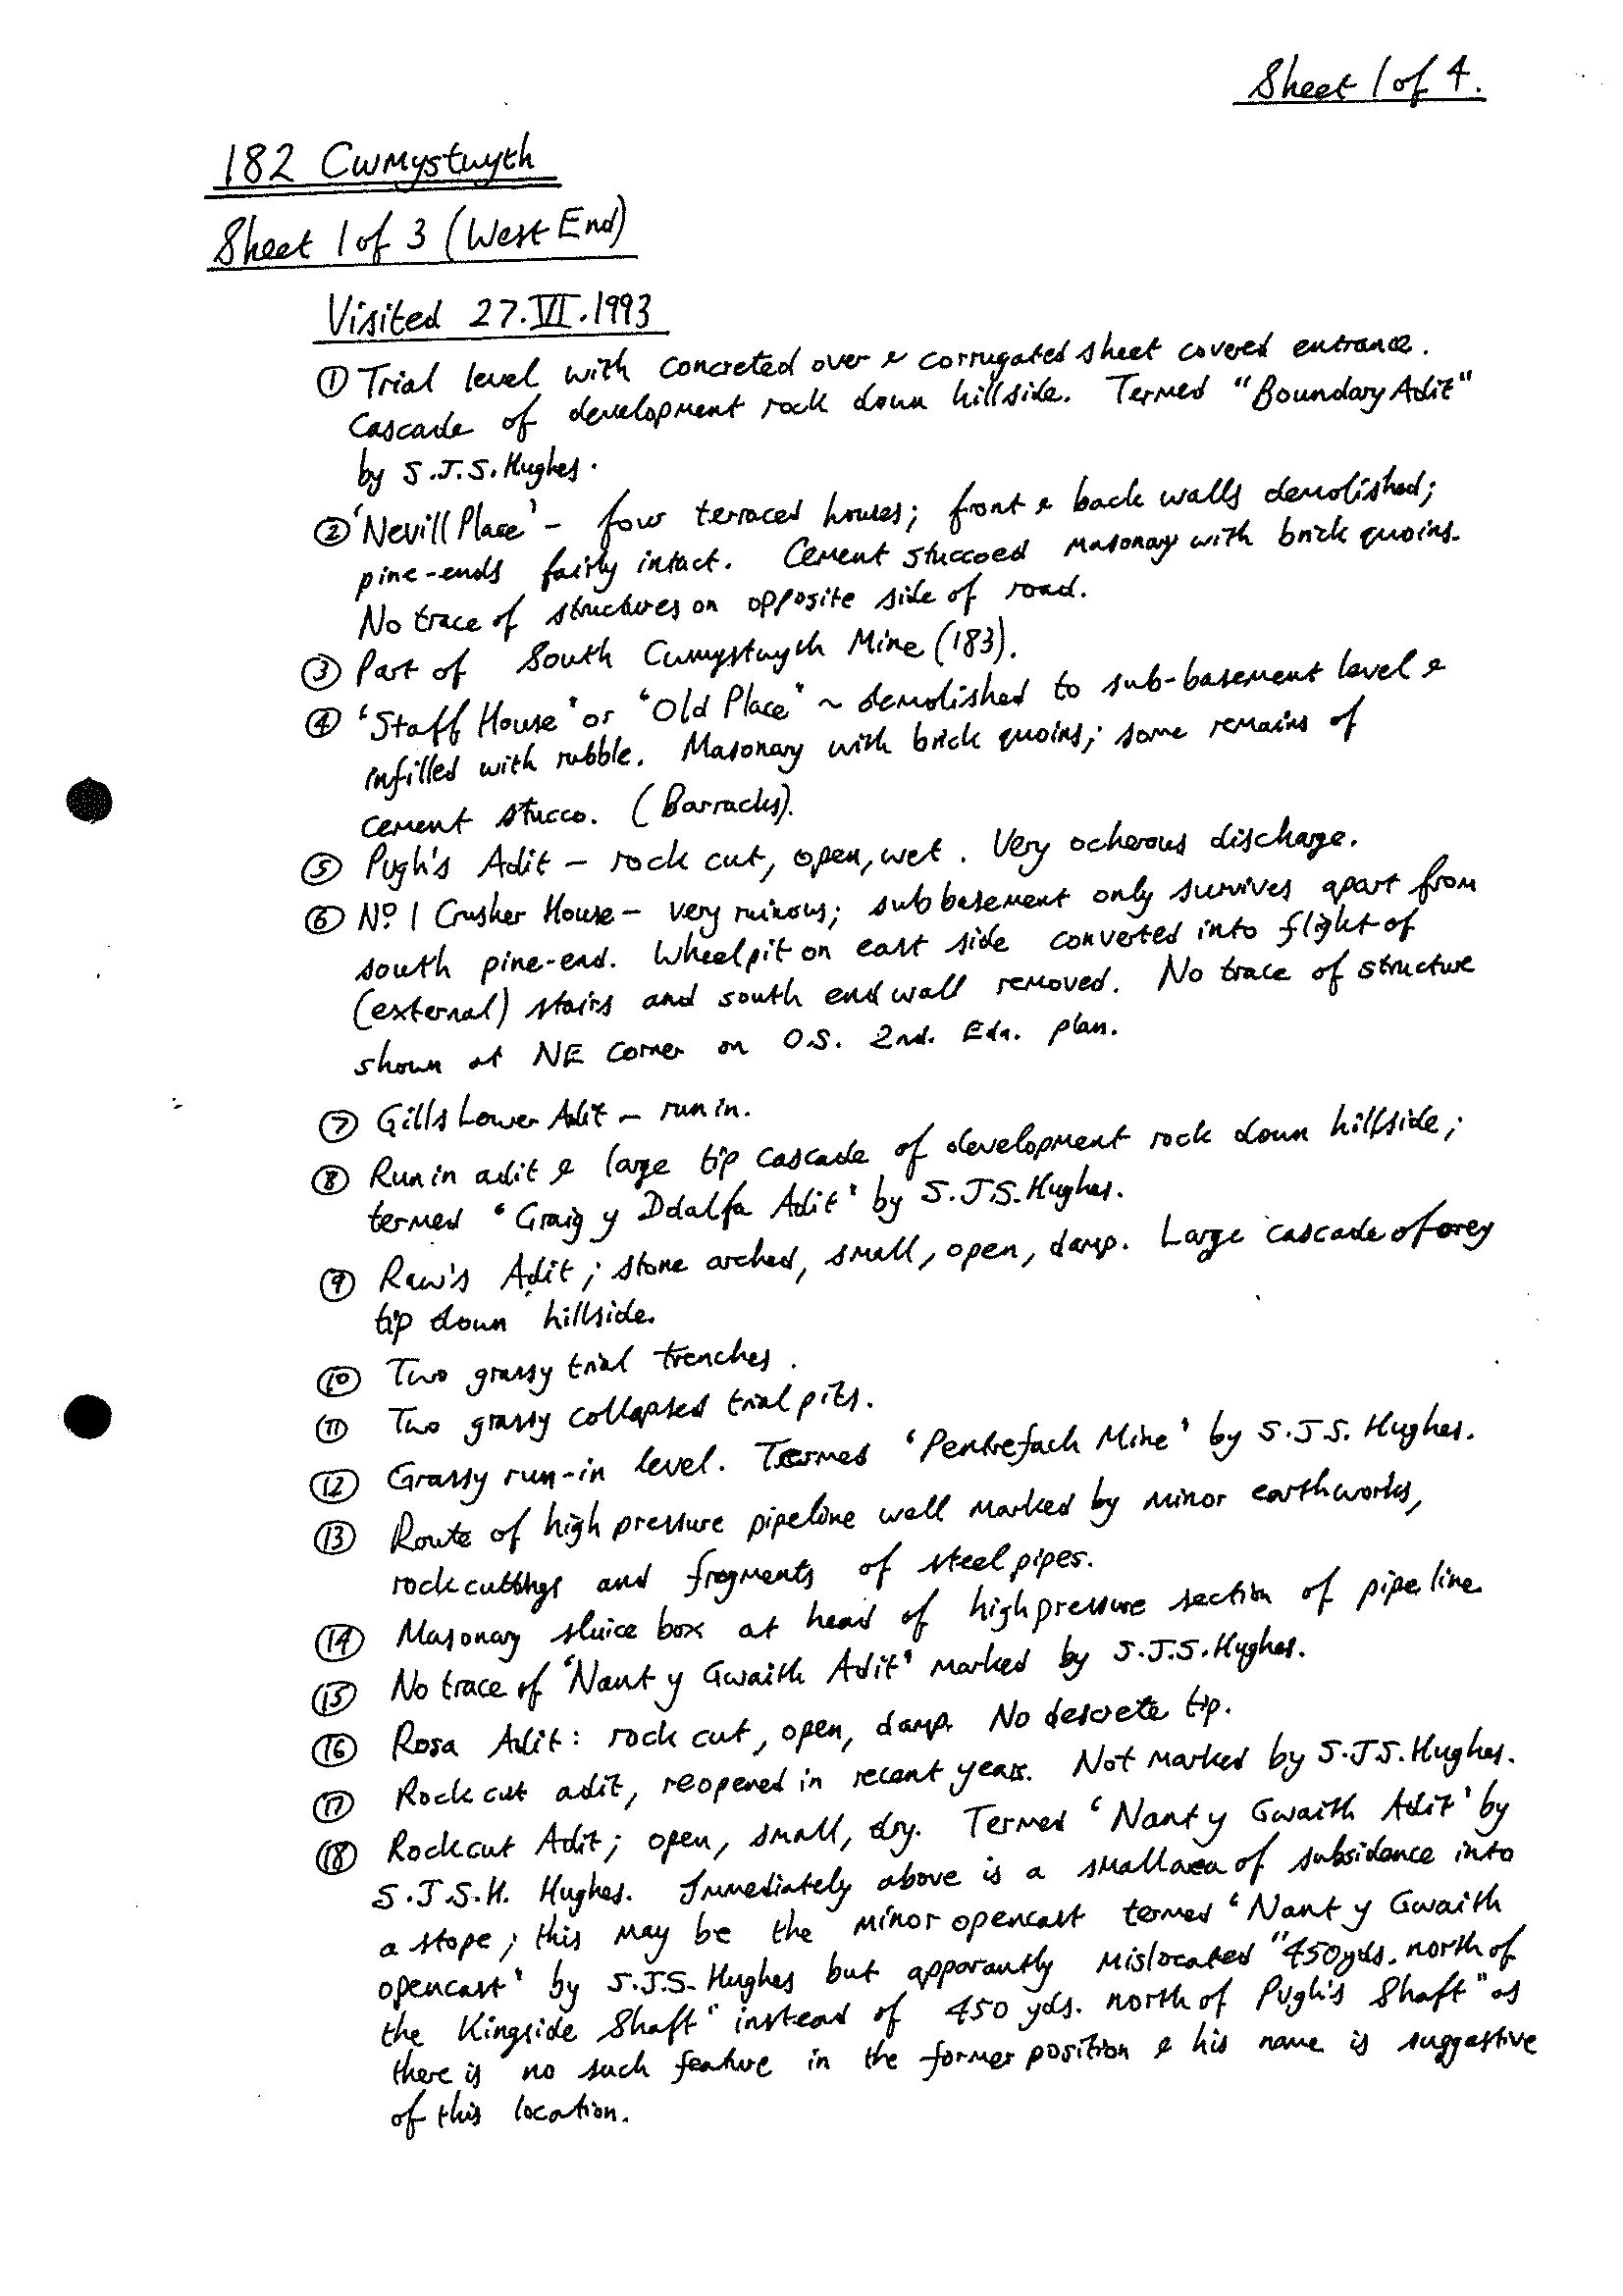 Sheet 1 of 4.
182 Cwmystwyth
Sheet 1 of 3 (West End)
Visited 27.VI.1993
① Trial level with concreted over & corrugated sheet covered entrance.
Cascade of development rock down hillside. Termed "Boundary Adit"
by S.J.S. Hughes.
② 'Nevill Place' - four terraced houses; front & back walls demolished;
pine-ends fairly intact. Cement stuccoed masonary with brick quoins.
No trace of structures on opposite side of road.
③ Part of South Cwmystwyth Mine (183).
④ 'Staff House' or 'Old Place' ~ demolished to sub-basement level &
infilled with rubble. Masonary with brick quoins; some remains of
cement stucco. (Barracks).
⑤ Pugh's Adit - rock cut, open, wet. Very ocherous discharge.
⑥ No. 1 Crusher House - very ruinous; sub basement only survives apart from
south pine-end. Wheelpit on east side converted into flight of
(external) stairs and south end wall removed. No trace of structure
shown at NE corner on O.S. 2nd. Edn. plan.
⑦ Gills Lower Adit - run in.
⑧ Run in adit & large tip cascade of development rock down hillside;
termed 'Graig y Ddalfa Adit' by S.J.S. Hughes.
⑨ Raw's Adit; stone arched, small, open, damp. Large cascade of orey
tip down hillside.
⑩ Two grassy trial trenches.
⑪ Two grassy collapsed trial pits.
⑫ Grassy run-in level. Termed 'Pentrefach Mine' by S.J.S. Hughes.
⑬ Route of high pressure pipeline well marked by minor earthworks,
rock cuttings and fragments of steel pipes.
⑭ Masonary sluice box at head of high pressure section of pipeline
⑮ No trace of 'Nant y Gwaith Adit' marked by S.J.S. Hughes.
⑯ Rosa Adit: rock cut, open, damp. No descrete tip.
⑰ Rock cut adit, reopened in recent years. Not marked by S.J.S. Hughes.
⑱ Rock cut Adit; open, small, dry. Termed 'Nant y Gwaith Adit' by
S.J.S.H. Hughes. Immediately above is a small area of subsidence into
a stope; this may be the minor opencast termed 'Nant y Gwaith
opencast' by S.J.S. Hughes but apparantly mislocated "450 yds. north of
the Kingside Shaft" instead of 450 yds. north of Pugh's Shaft" as
there is no such feature in the former position & his name is suggestive
of this location.